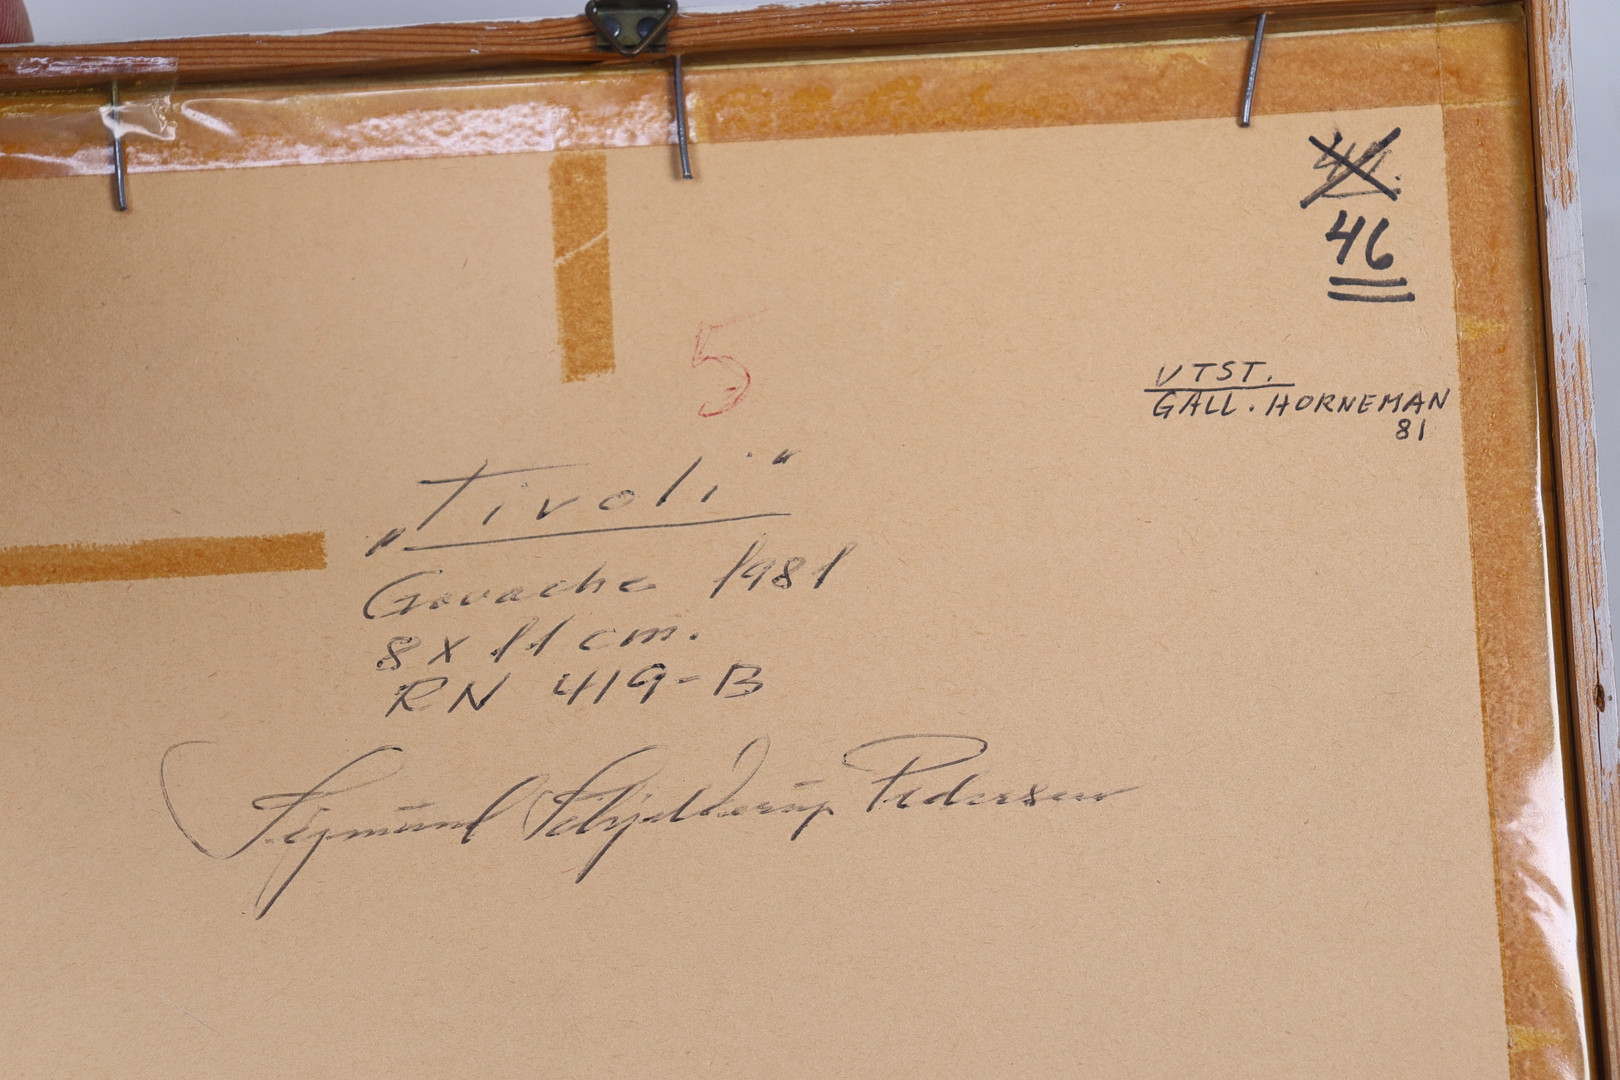 46
UTST.
GALL. HORNEMAN
81
5
„Tivoli“
Gouache 1981
8 x 11 cm.
RN 419-B
Sigmund Schjelderup Pedersen